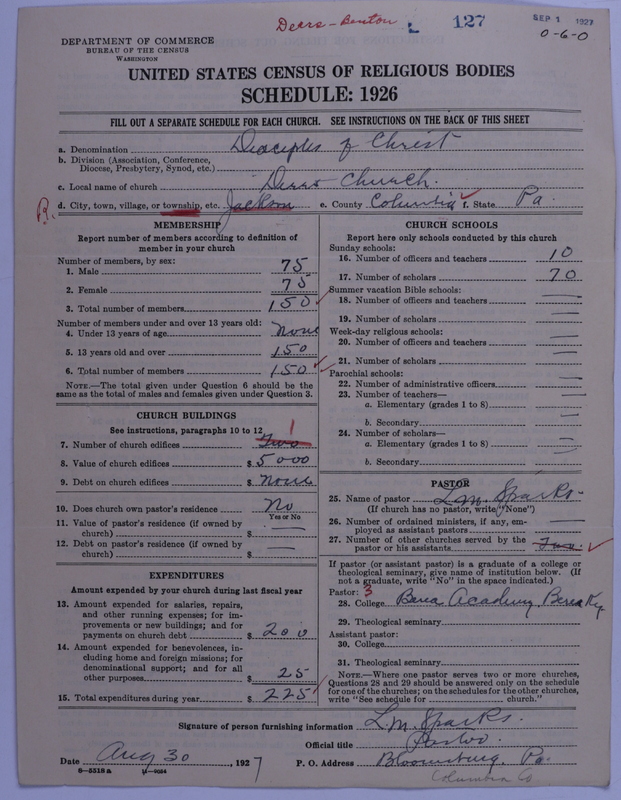 Derrs - Benton L 127 SEP 1 1927
0-6-0
DEPARTMENT OF COMMERCE
BUREAU OF THE CENSUS
WASHINGTON
UNITED STATES CENSUS OF RELIGIOUS BODIES
SCHEDULE: 1926
FILL OUT A SEPARATE SCHEDULE FOR EACH CHURCH. SEE INSTRUCTIONS ON THE BACK OF THIS SHEET
a. Denomination Disciples of Christ
b. Division (Association, Conference,
Diocese, Presbytery, Synod, etc.)
c. Local name of church Derrs Church.
R. d. City, town, village, or township, etc. Jackson e. County Columbia f. State Pa.
MEMBERSHIP
Report number of members according to definition of
member in your church
Number of members, by sex:
1. Male 75
2. Female 75
3. Total number of members 150
Number of members under and over 13 years old:
4. Under 13 years of age None
5. 13 years old and over 150
6. Total number of members 150
NOTE.—The total given under Question 6 should be the
same as the total of males and females given under Question 3.
CHURCH BUILDINGS
See instructions, paragraphs 10 to 12
7. Number of church edifices Two 1
8. Value of church edifices $ 5000
9. Debt on church edifices $ None
10. Does church own pastor's residence? No
Yes or No
11. Value of pastor's residence (if owned by
church) $ —
12. Debt on pastor's residence (if owned by
church) $ —
EXPENDITURES
Amount expended by your church during last fiscal year
13. Amount expended for salaries, repairs,
and other running expenses; for im-
provements or new buildings; and for
payments on church debt $ 200
14. Amount expended for benevolences, in-
cluding home and foreign missions; for
denominational support; and for all
other purposes $ 25
15. Total expenditures during year $ 225
CHURCH SCHOOLS
Report here only schools conducted by this church
Sunday schools:
16. Number of officers and teachers 10
17. Number of scholars 70
Summer vacation Bible schools:
18. Number of officers and teachers —
19. Number of scholars —
Week-day religious schools:
20. Number of officers and teachers —
21. Number of scholars —
Parochial schools:
22. Number of administrative officers —
23. Number of teachers—
a. Elementary (grades 1 to 8) —
b. Secondary —
24. Number of scholars—
a. Elementary (grades 1 to 8) —
b. Secondary —
PASTOR
25. Name of pastor L.M. Sparks.
(If church has no pastor, write "None")
26. Number of ordained ministers, if any, em-
ployed as assistant pastors —
27. Number of other churches served by the
pastor or his assistants Two
If pastor (or assistant pastor) is a graduate of a college or
theological seminary, give name of institution below. (If
not a graduate, write "No" in the space indicated.)
Pastor: 3
28. College Berea Academy Berea Ky
29. Theological seminary
Assistant pastor:
30. College
31. Theological seminary
NOTE.—Where one pastor serves two or more churches,
Questions 28 and 29 should be answered only on the schedule
for one of the churches; on the schedules for the other churches,
write "See schedule for church."
Signature of person furnishing information L.M. Sparks.
Official title Pastor.
Date Aug 30, 1927 P. O. Address Bloomsburg, Pa.
8-5518 a 11-9054 Columbia Co